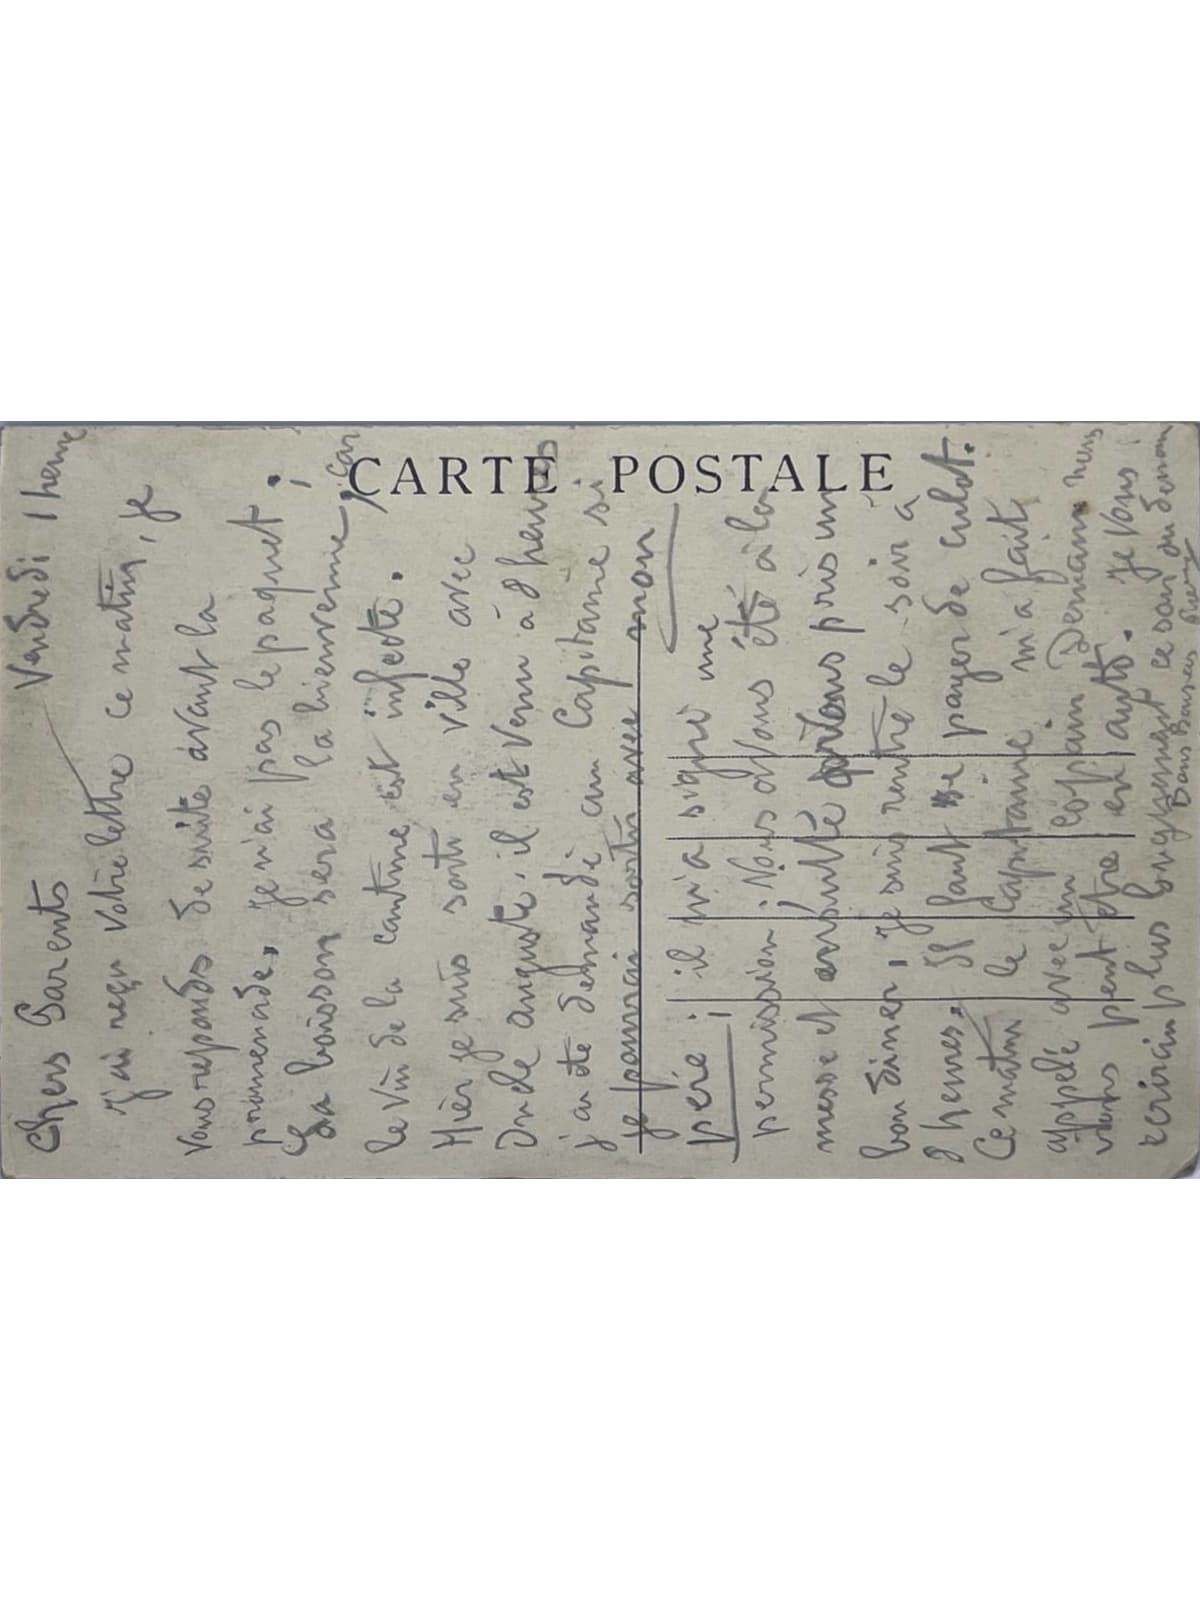 CARTE POSTALE
Vendredi 1 heure
Chers Parents
J'ai reçu votre lettre ce matin, je
vous reponds de suite avant la
promenade, je n'ai pas le paquet.
La boisson sera la bienvenue, car
le vin de la cantine est infecte.
Hièr je suis sorti en ville avec
Oncle auguste, il est venu à 8 heures
j'ai été demandé au Capitaine si
je pourrai sortir avec mon
père ; il m'a signé une
permission. Nous avons été à la
messe et ensuite avons pris un
bon diner, je suis rentré le soir à
8 heures. Il faut se payer de culot.
Ce matin le Capitaine m'a fait
appelé avec un copain Demain nous
irons peut être en auto. Je vous
ecrirai plus longuement ce soir ou demain
Bons Baisers